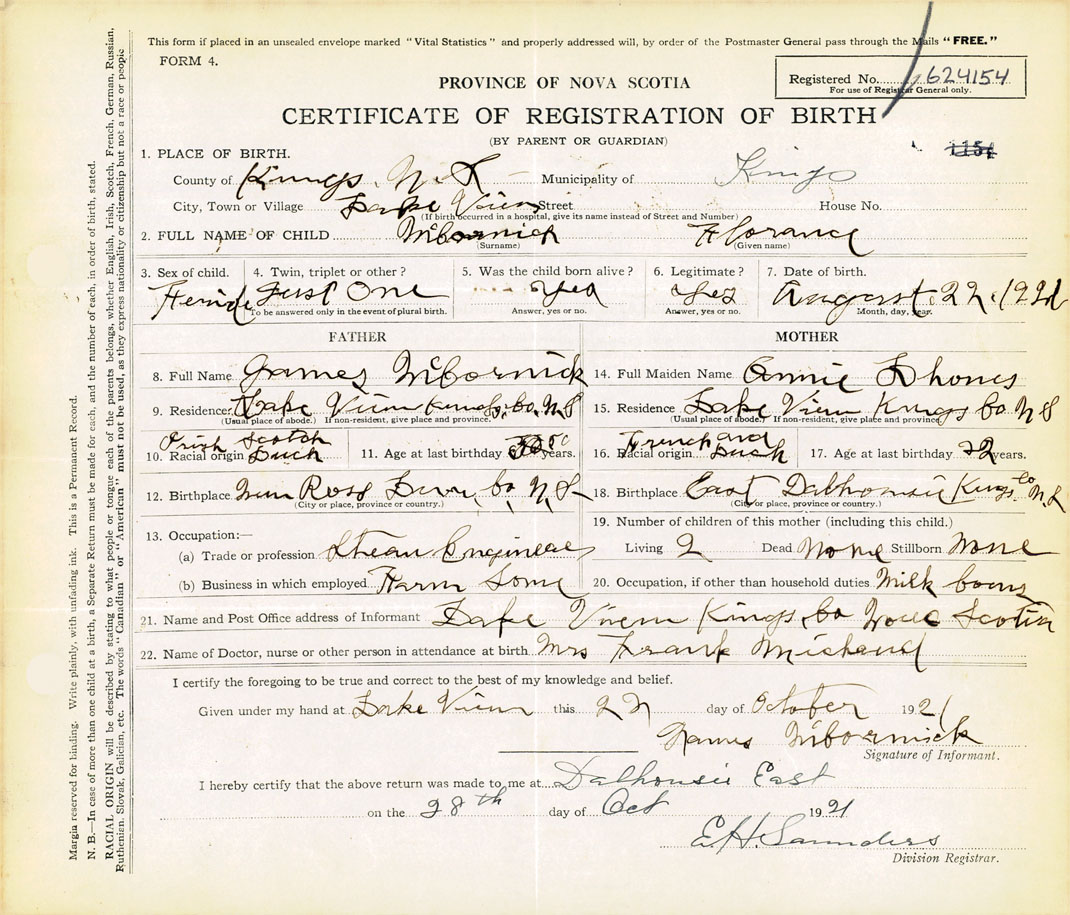 This form if placed in an unsealed envelope marked "Vital Statistics" and properly addressed will, by order of the Postmaster General pass through the Mails "FREE."
FORM 4.
Registered No. 624154
For use of Registrar General only.
PROVINCE OF NOVA SCOTIA
CERTIFICATE OF REGISTRATION OF BIRTH
(BY PARENT OR GUARDIAN)
1. PLACE OF BIRTH.
County of Kings N.S Municipality of Kings
City, Town or Village Lake View Street House No.
(If birth occurred in a hospital, give its name instead of Street and Number)
2. FULL NAME OF CHILD McCormick Florance
(Surname) (Given name)
3. Sex of child. 4. Twin, triplet or other? 5. Was the child born alive? 6. Legitimate? 7. Date of birth.
Just One Yea Yes August 22. 1921
To be answered only in the event of plural birth. Answer, yes or no. Answer, yes or no. Month, day, year.
FATHER MOTHER
8. Full Name James McCormick 14. Full Maiden Name Annie Rhones
9. Residence Lake View Kings Co. N.S 15. Residence Lake View Kings Co N S
(Usual place of abode.) If non-resident, give place and province. (Usual place of abode.) If non-resident, give place and province.
10. Racial origin Irish Scotch Duch 11. Age at last birthday years. 16. Racial origin French and Duch 17. Age at last birthday 22 years.
12. Birthplace New Ross Lun Co N S 18. Birthplace East Dalhousie Kings Co N S
(City or place, province or country.) (City or place, province or country.)
13. Occupation:— 19. Number of children of this mother (including this child.)
(a) Trade or profession Steam Engineer Living 2 Dead None Stillborn None
(b) Business in which employed Farm Some 20. Occupation, if other than household duties Milk Cows
21. Name and Post Office address of Informant Lake View Kings Co Scotia
22. Name of Doctor, nurse or other person in attendance at birth Mrs Frank
I certify the foregoing to be true and correct to the best of my knowledge and belief.
Given under my hand at Lake View this day of October 1921
James McCormick
Signature of Informant.
I hereby certify that the above return was made to me at Dalhousie East
on the 28th day of Oct 1921
E.H. Saunders
Division Registrar.
Margin reserved for binding. Write plainly, with unfading ink. This is a Permanent Record.
N. B.—In case of more than one child at a birth, a Separate Return must be made for each, and the number of each, in order of birth, stated.
RACIAL ORIGIN will be described by stating to what people or tongue each of the parents belongs, whether English, Irish, Scotch, French, German, Russian,
Ruthenian, Slovak, Galician, etc. The words "Canadian" or "American" must not be used, as they express nationality or citizenship but not a race or people